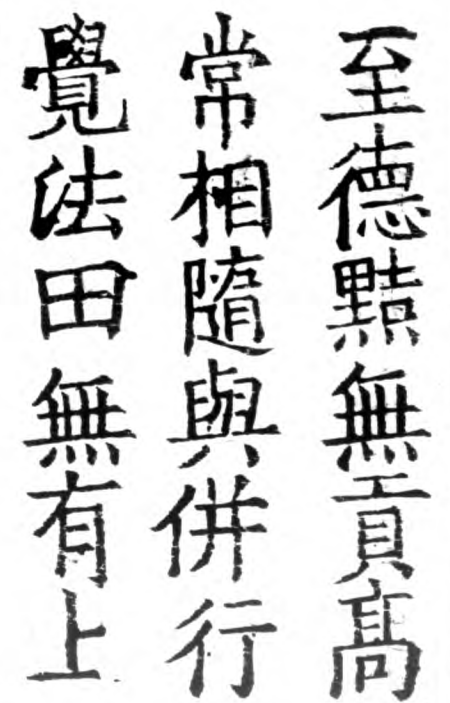 至德黠無貢髙
常相隨與併行
覺法田無有上